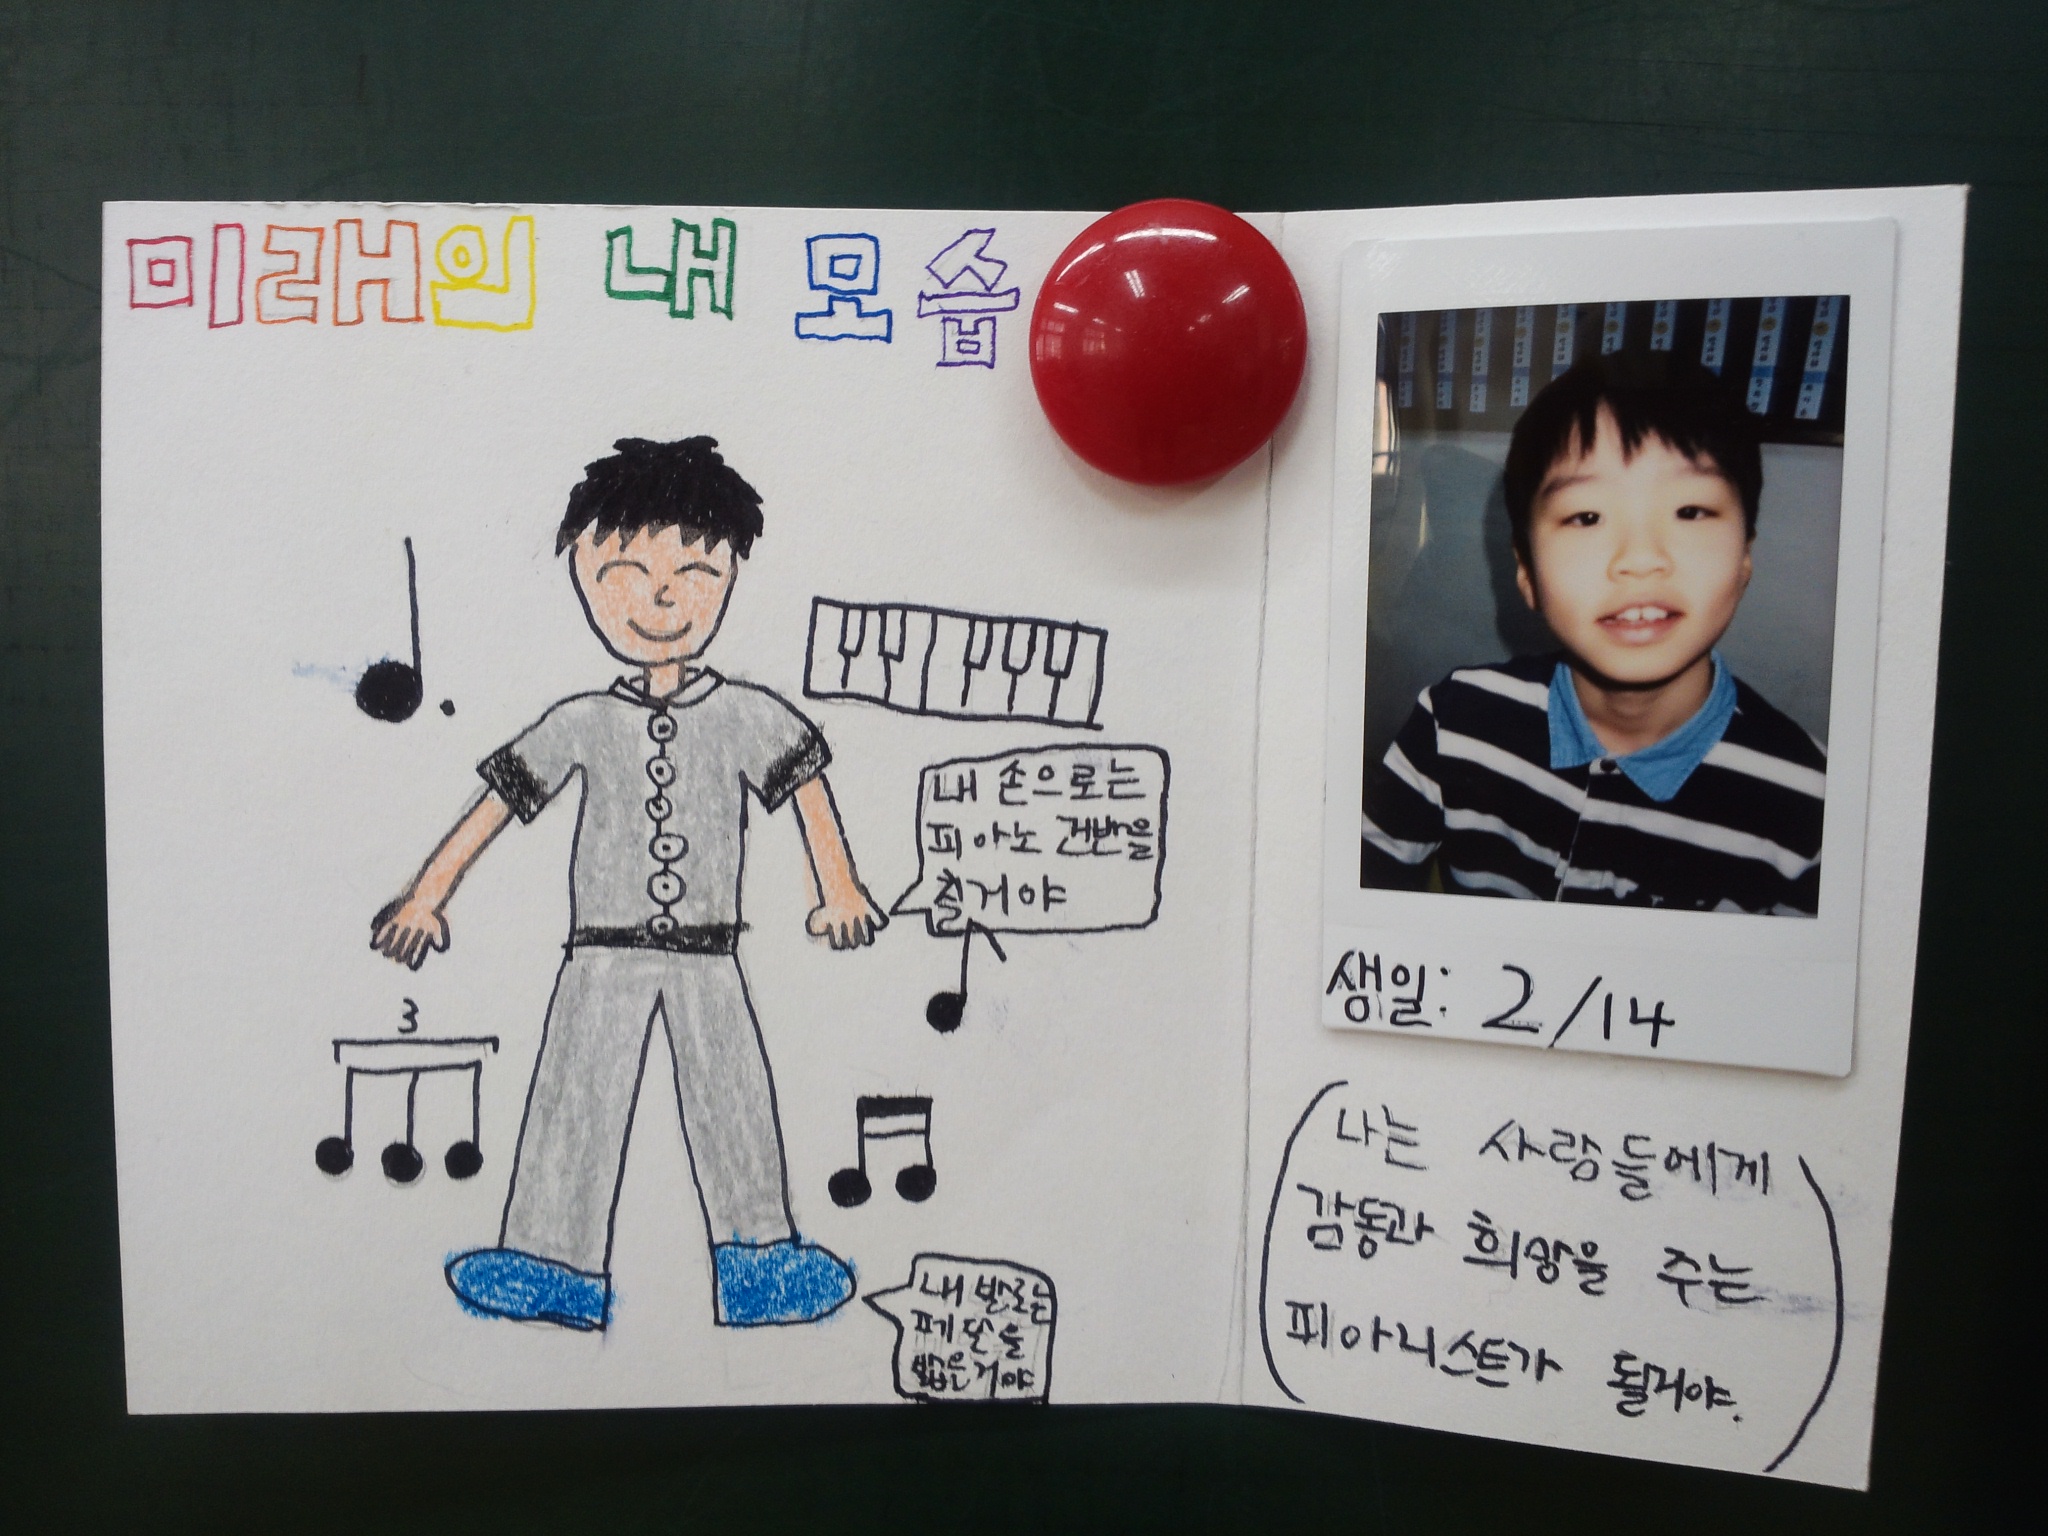 미래의 내 모습
내 손으로는
피아노 건반을
칠거야
3
내 발로는
페달을
밟은거야
생일: 2/14
나는 사람들에게
감동과 희망을 주는
피아니스트가 될거야.